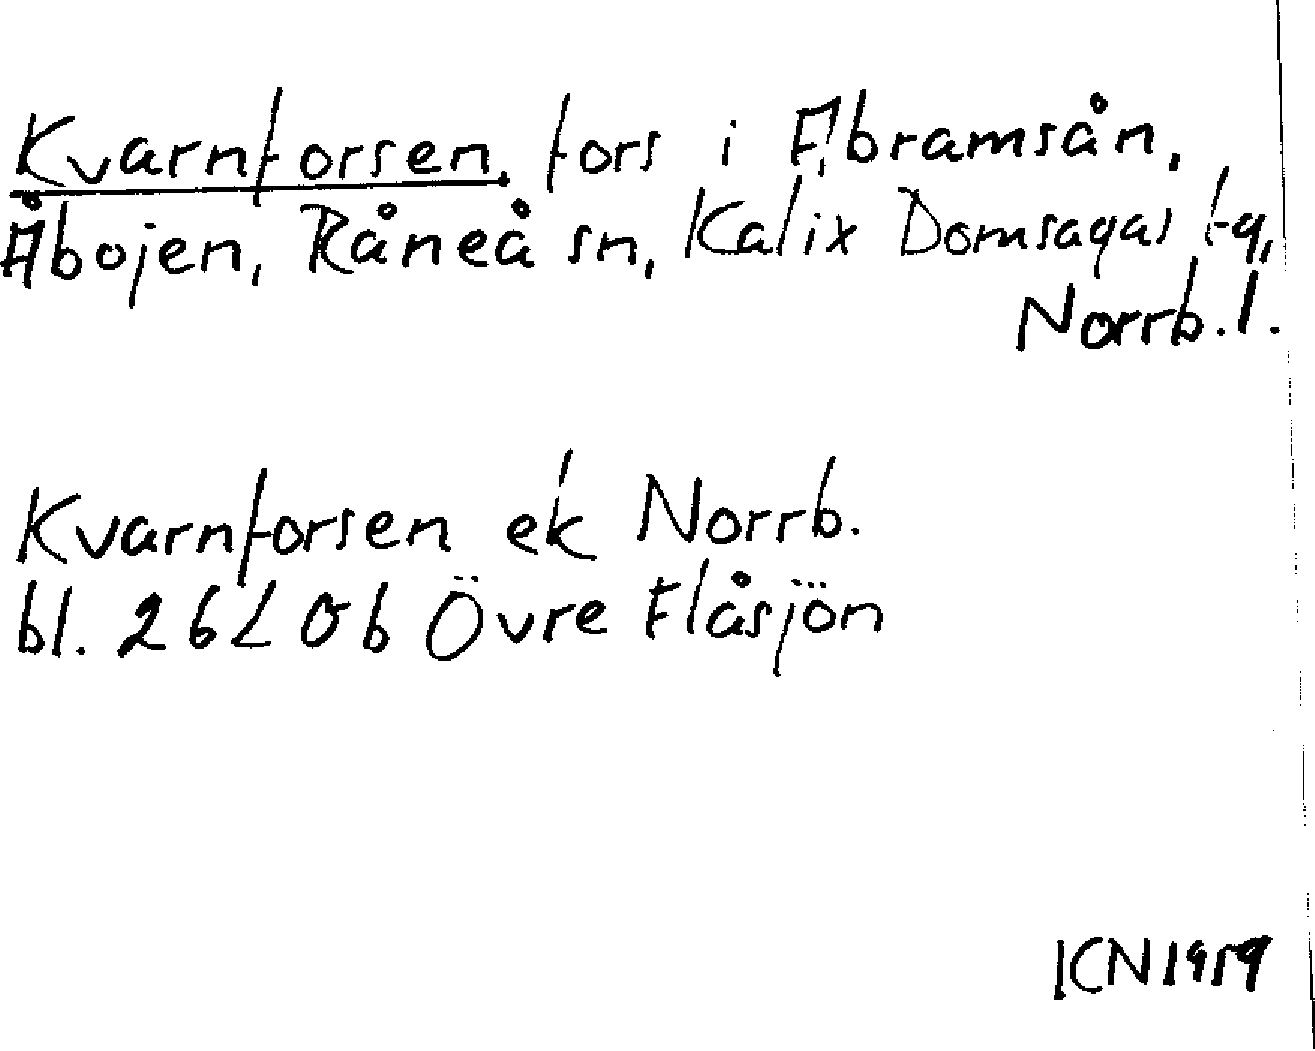 Kvarnforsen, fors i Abramsån,
Åbojen, Råneå sn, Kalix Domsagas tg,
Norrb. l.
Kvarnforsen ek Norrb.
bl. 26 L 0b Övre Flåsjön
KN 1959